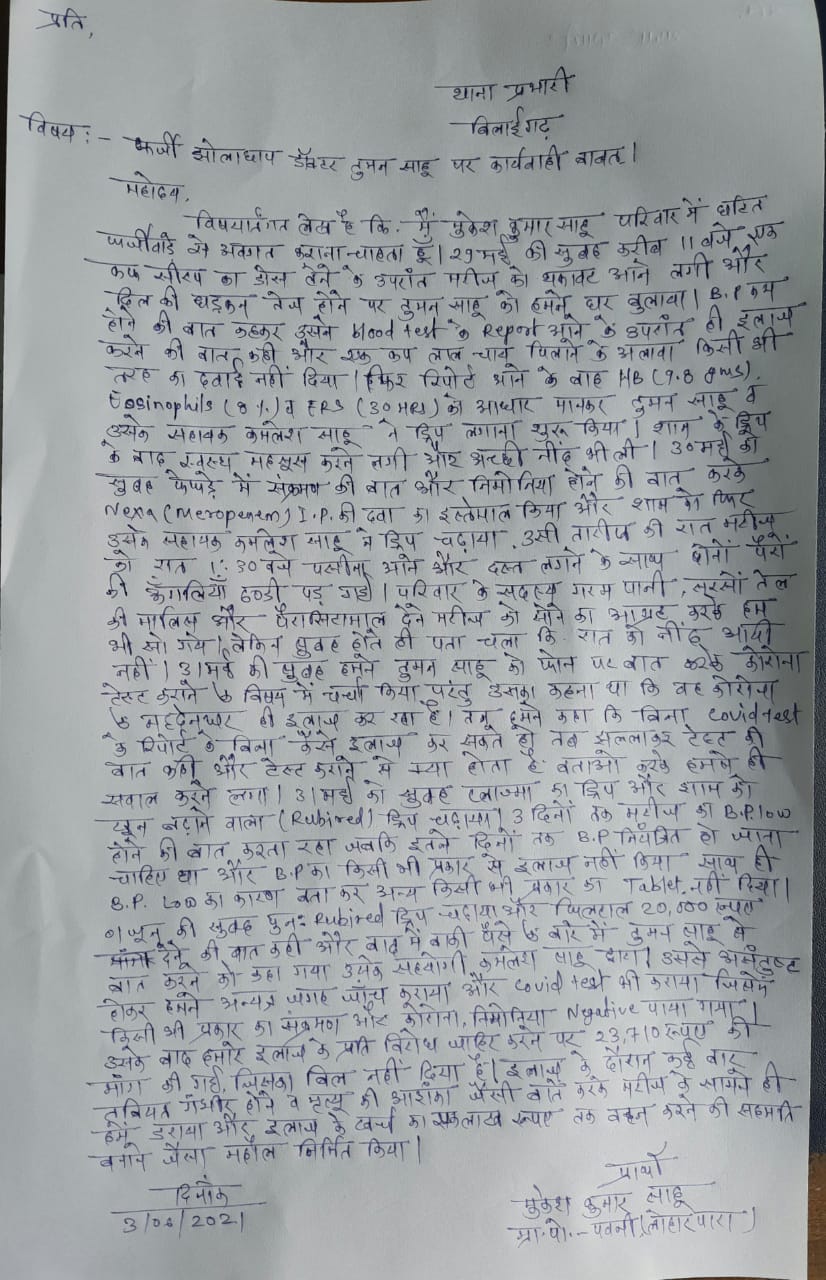 प्रति,
थाना प्रभारी
बिलाईगढ़
विषय :- फर्जी झोलाछाप डॉक्टर टुमन साहू पर कार्यवाही बाबत्।
महोदय,
विषयांर्तगत लेख है कि मैं मुकेश कुमार साहू परिवार में घटित
फर्जीवाडे से अवगत कराना चाहता हूँ। 29 मई की सुबह करीब 11 बजे एक
कफ सीरप का डोस लेने के उपरांत मरीज को थकावट आने लगी और
दिल की धड़कन तेज होने पर टुमन साहू को हमने घर बुलाया। B.P कम
होने की बात कहकर उसने blood test के Report आने के उपरांत ही इलाज
करने की बात कही और एक कप लाल चाय पिलाने के अलावा किसी भी
तरह का दवाई नहीं दिया। फिर रिपोर्ट आने के बाद HB (9.8 gms),
Eosinophils (8%) व ERS (30 MRS) को आधार मानकर टुमन साहू व
उसके सहायक कमलेश साहू ने ड्रिप लगाना शुरू किया। शाम के ड्रिप
के बाद स्वस्थ्य महसूस करने लगी और अच्छी नींद भी ली। 30 मई को
सुबह फेफड़े में संक्रमण की बात और निमोनिया होने की बात करके
Nexa (Meropenem) I.P. की दवा का इस्तेमाल किया और शाम को फिर
उसके सहायक कमलेश साहू ने ड्रिप चढ़ाया. उसी तारीज की रात मरीज
को रात 1:30 बजे पसीना आने और दस्त लगने के साथ दोनों पैरों
की ऊँगलियाँ ठण्डी पड़ गई। परिवार के सदस्य गरम पानी, सरसों तेल
की मालिस और पैरासिटामाल देने मरीज को सोने का आग्रह करके हम
भी सो गये। लेकिन सुबह होते ही पता चला कि रात को नींद आयी
नहीं। 31 मई की सुबह हमने टुमन साहू को फोन पर बात करके कोरोना
टेस्ट कराने के विषय में चर्चा किया परंतु उसका कहना था कि वह कोरोना
के मद्देनजर ही इलाज कर रहा है। हमने कहा कि बिना Covid test
के रिपोर्ट के बिना कैसे इलाज कर सकते हो तब झल्लाकर टेस्ट की
बात कही और टेस्ट कराने से क्या होता है बताओ करके हमसे ही
सवाल करने लगा। 31 मई को सुबह प्लाज्मा का ड्रिप और शाम को
खून बढ़ाने वाला (Rubired) ड्रिप चढ़ाया। 3 दिनों तक मरीज का B.P. low
होने की बात करता रहा जबकि इतने दिनों तक B.P नियंत्रित हो जाना
चाहिए था और B.P का किसी भी प्रकार से इलाज नहीं किया साथ ही
B.P. Low का कारण बता कर अन्य किसी भी प्रकार का Tablet नहीं दिया।
01 जून की सुबह पुनः Rubired ड्रिप चढ़ाया और फिलहाल 20,000 रूपए
देने की बात कही और बाद में बाकी पैसे के बारे में टुमन साहू से
बात करने को कहा गया उसके सहयोगी कमलेश साहू द्वारा। उससे असंतुष्ट
होकर हमने अन्यत्र जगह जाँच कराया और Covid test भी कराया जिसमें
किसी भी प्रकार का संक्रमण और कोरोना, निमोनिया Negative पाया गया।
उसके बाद हमारे इलाज के प्रति विरोध जाहिर करने पर 23,710 रूपए की
मांग की गई, जिसका बिल नहीं दिया है। इलाज के दौरान कई बार
तबियत गंभीर होने व मृत्यू की आशंका जैसी बातें करके मरीज के सामने ही
हमें डराया और इलाज के खर्च का एक लाख रूपए तक वहन करने की सहमति
बनाने जैसा महौल निर्मित किया।
प्रार्थी
दिनाँक
मुकेश कुमार साहू
3/06/2021
ग्रा.पो.- पवनी (लोहारपारा)